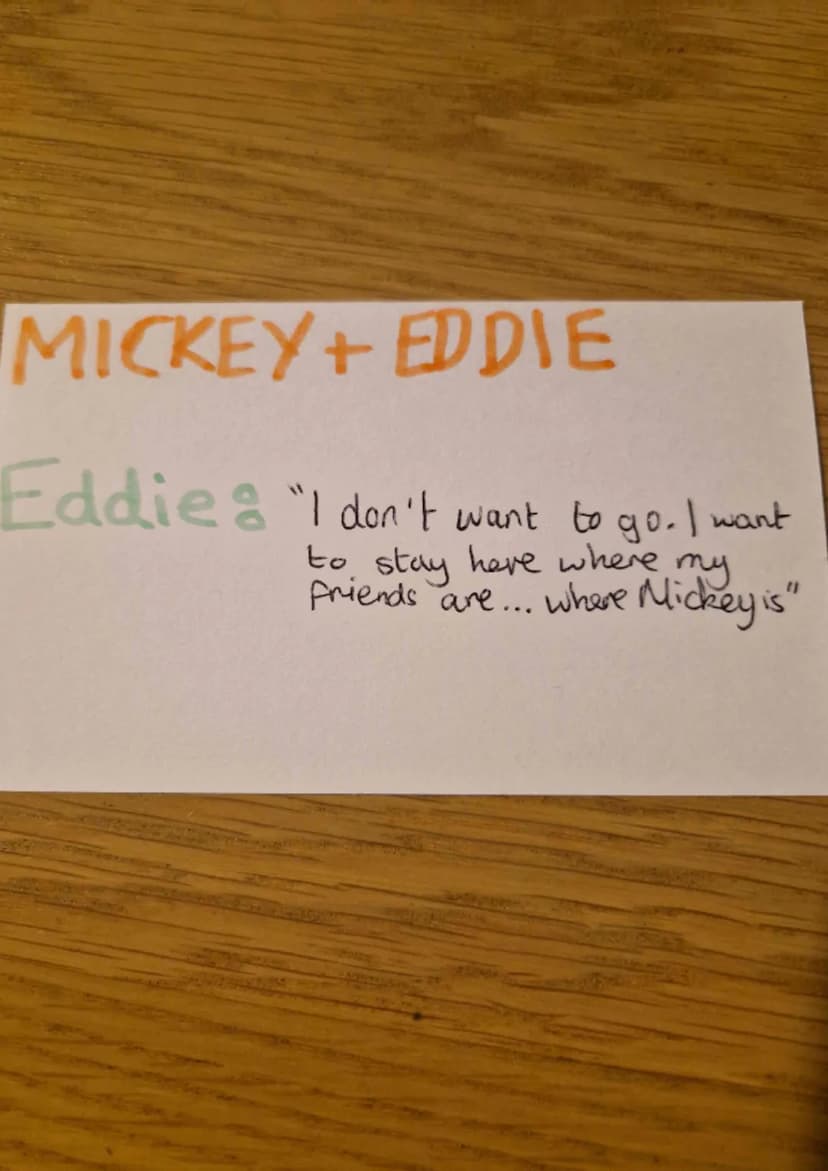 MICKEY + EDDIE
Eddie: "I don't want to go. I want
to stay here where my
friends are... where Mickey is"